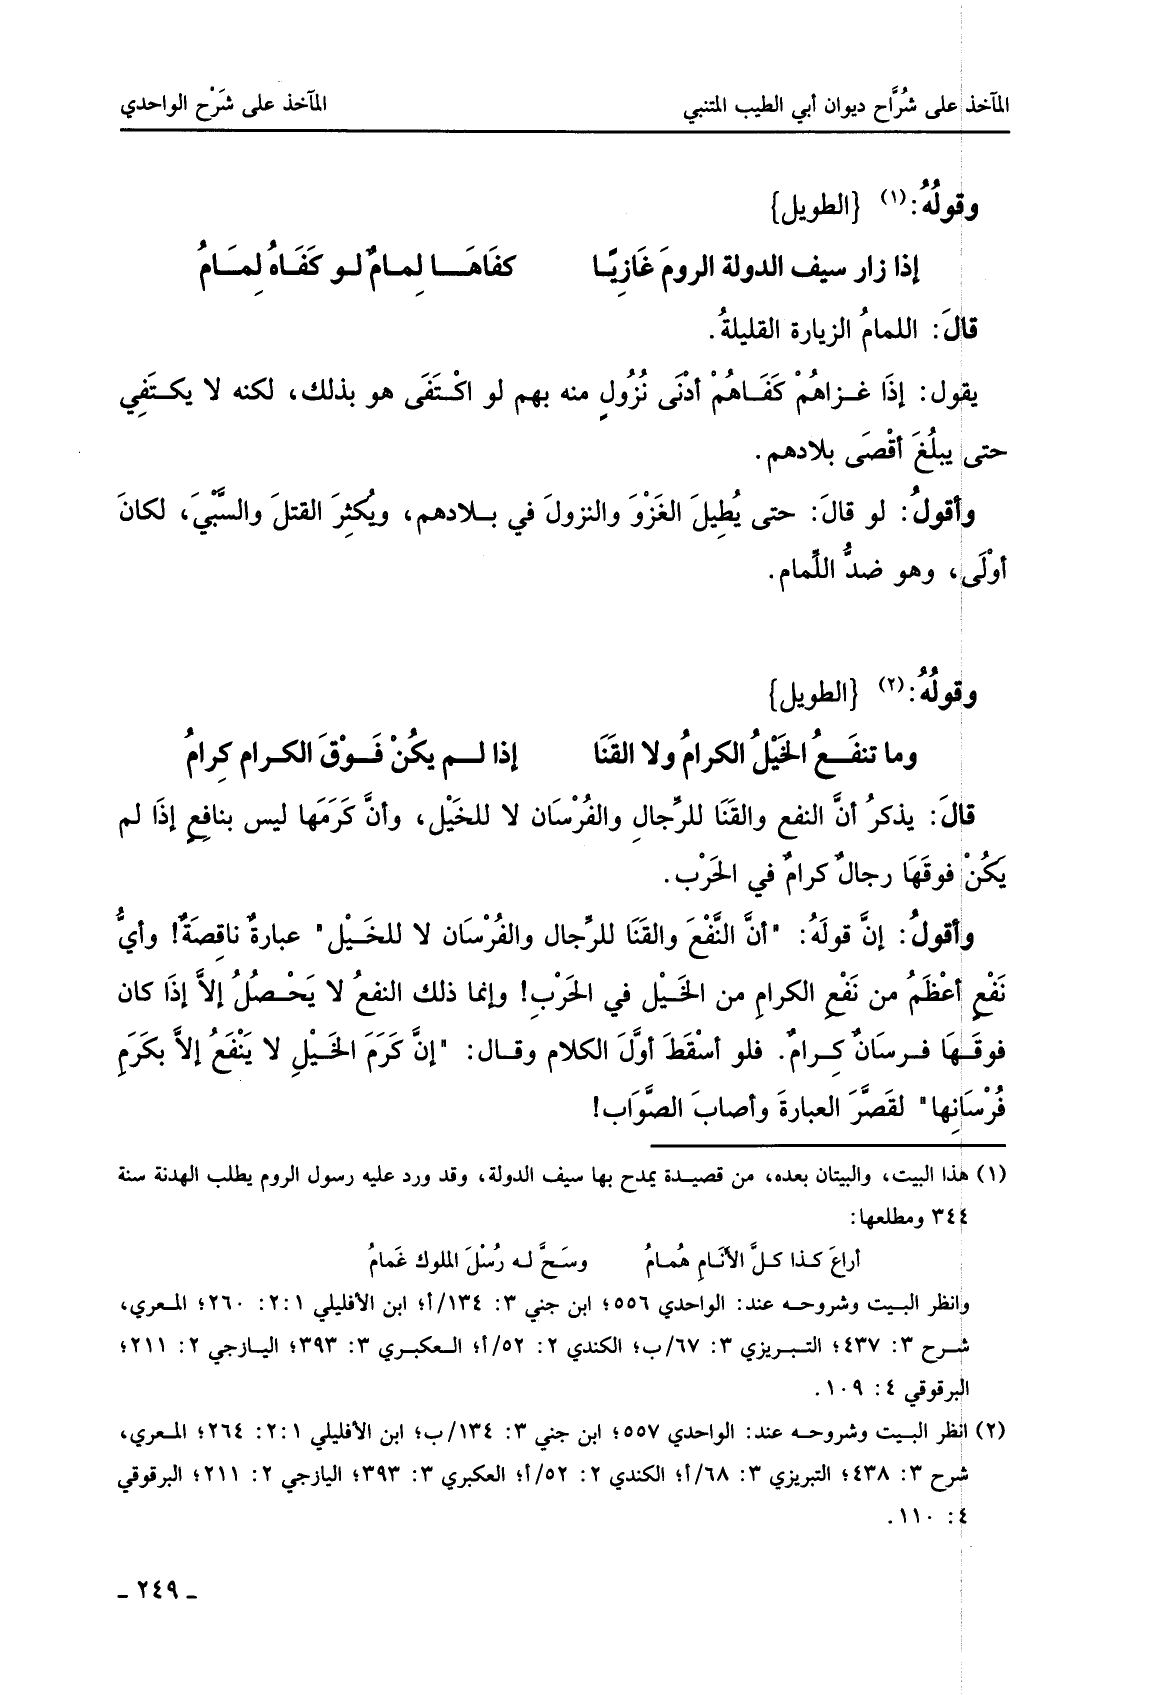 المآخذ على شُرَّاح ديوان أبي الطيب المتنبي المآخذ على شَرْح الواحدي
وقولُهُ:(١) {الطويل}
إذا زار سيف الدولة الرومَ غَازِيًا كفَاهَـــا لِمامٌ لـو كَفَـاهُ لِمَـامُ
قالَ: اللمامُ الزيارة القليلةُ.
يقول: إذَا غـزاهُمْ كَفَـاهُمْ أدْنَى نُزُولٍ منه بهم لو اكْتَفَى هو بذلك، لكنه لا يكـتَفِي
حتى يبلُغَ أقْصَى بلادهم.
وأقولُ: لو قالَ: حتى يُطِيلَ الغَزْوَ والنزولَ في بـلادهم، ويُكثِرَ القتلَ والسَّبْيَ، لكانَ
أوْلَى، وهو ضدُّ اللِّمام.
وقولُهُ:(٢) {الطويل}
وما تنفَــعُ الخَيْلُ الكرامُ ولا القَنَا إذا لــم يكُنْ فَـوْقَ الكـرام كِرامُ
قالَ: يذكرُ أنَّ النفع والقَنَا للرِّجالِ والفُرْسَان لا للخَيْل، وأنَّ كَرَمَها ليس بنافِعٍ إذَا لم
يَكُنْ فوقَهَا رجالٌ كرامٌ في الحَرْب.
وأقولُ: إنَّ قولَهُ: "أنَّ النَّفْعَ والقَنَا للرِّجال والفُرْسَان لا للخَـيْل" عبارةٌ ناقِصَةٌ! وأيُّ
نَفْعٍ أعْظَمُ من نَفْعِ الكرامِ من الخَـيْل في الحَرْبِ! وإنما ذلك النفعُ لا يَحْـصُلُ إلاَّ إذَا كان
فوقَـهَا فـرسَانٌ كِـرامٌ. فلو أسْقَطَ أوَّلَ الكلام وقـال: "إنَّ كَرَمَ الخَيْلِ لا يَنْفَعُ إلاَّ بكَرَمِ
فُرْسَانِها" لقَصَّرَ العبارةَ وأصابَ الصَّوَاب!
(١) هذا البيت، والبيتان بعده، من قصيـدة يمدح بها سيف الدولة، وقد ورد عليه رسول الروم يطلب الهدنة سنة
٣٤٤ ومطلعها:
أراعَ كـذا كـلَّ الأنَـامِ هُمـامُ وسَـحَّ لـه رُسْلَ الملوك غَمامُ
وانظر البـيت وشروحـه عند: الواحدي ٥٥٦؛ ابن جني ٣: ١٣٤/أ؛ ابن الأفليلي ٢:١: ٢٦٠؛ المـعري،
شـرح ٣: ٤٣٧؛ التـبـريزي ٣: ٦٧/ب؛ الكندي ٢: ٥٢/أ؛ الـعكبـري ٣: ٣٩٣؛ اليـازجي ٢: ٢١١؛
البرقوقي ٤: ١٠٩.
(٢) انظر البـيت وشروحـه عند: الواحدي ٥٥٧؛ ابن جني ٣: ١٣٤/ب؛ ابن الأفليلي ٢:١: ٢٦٤؛ المـعري،
شرح ٣: ٤٣٨؛ التبريزي ٣: ٦٨/أ؛ الكندي ٢: ٥٢/أ؛ العكبري ٣: ٣٩٣؛ اليازجي ٢: ٢١١؛ البرقوقي
٤: ١١٠.
ـ ٢٤٩ ـ